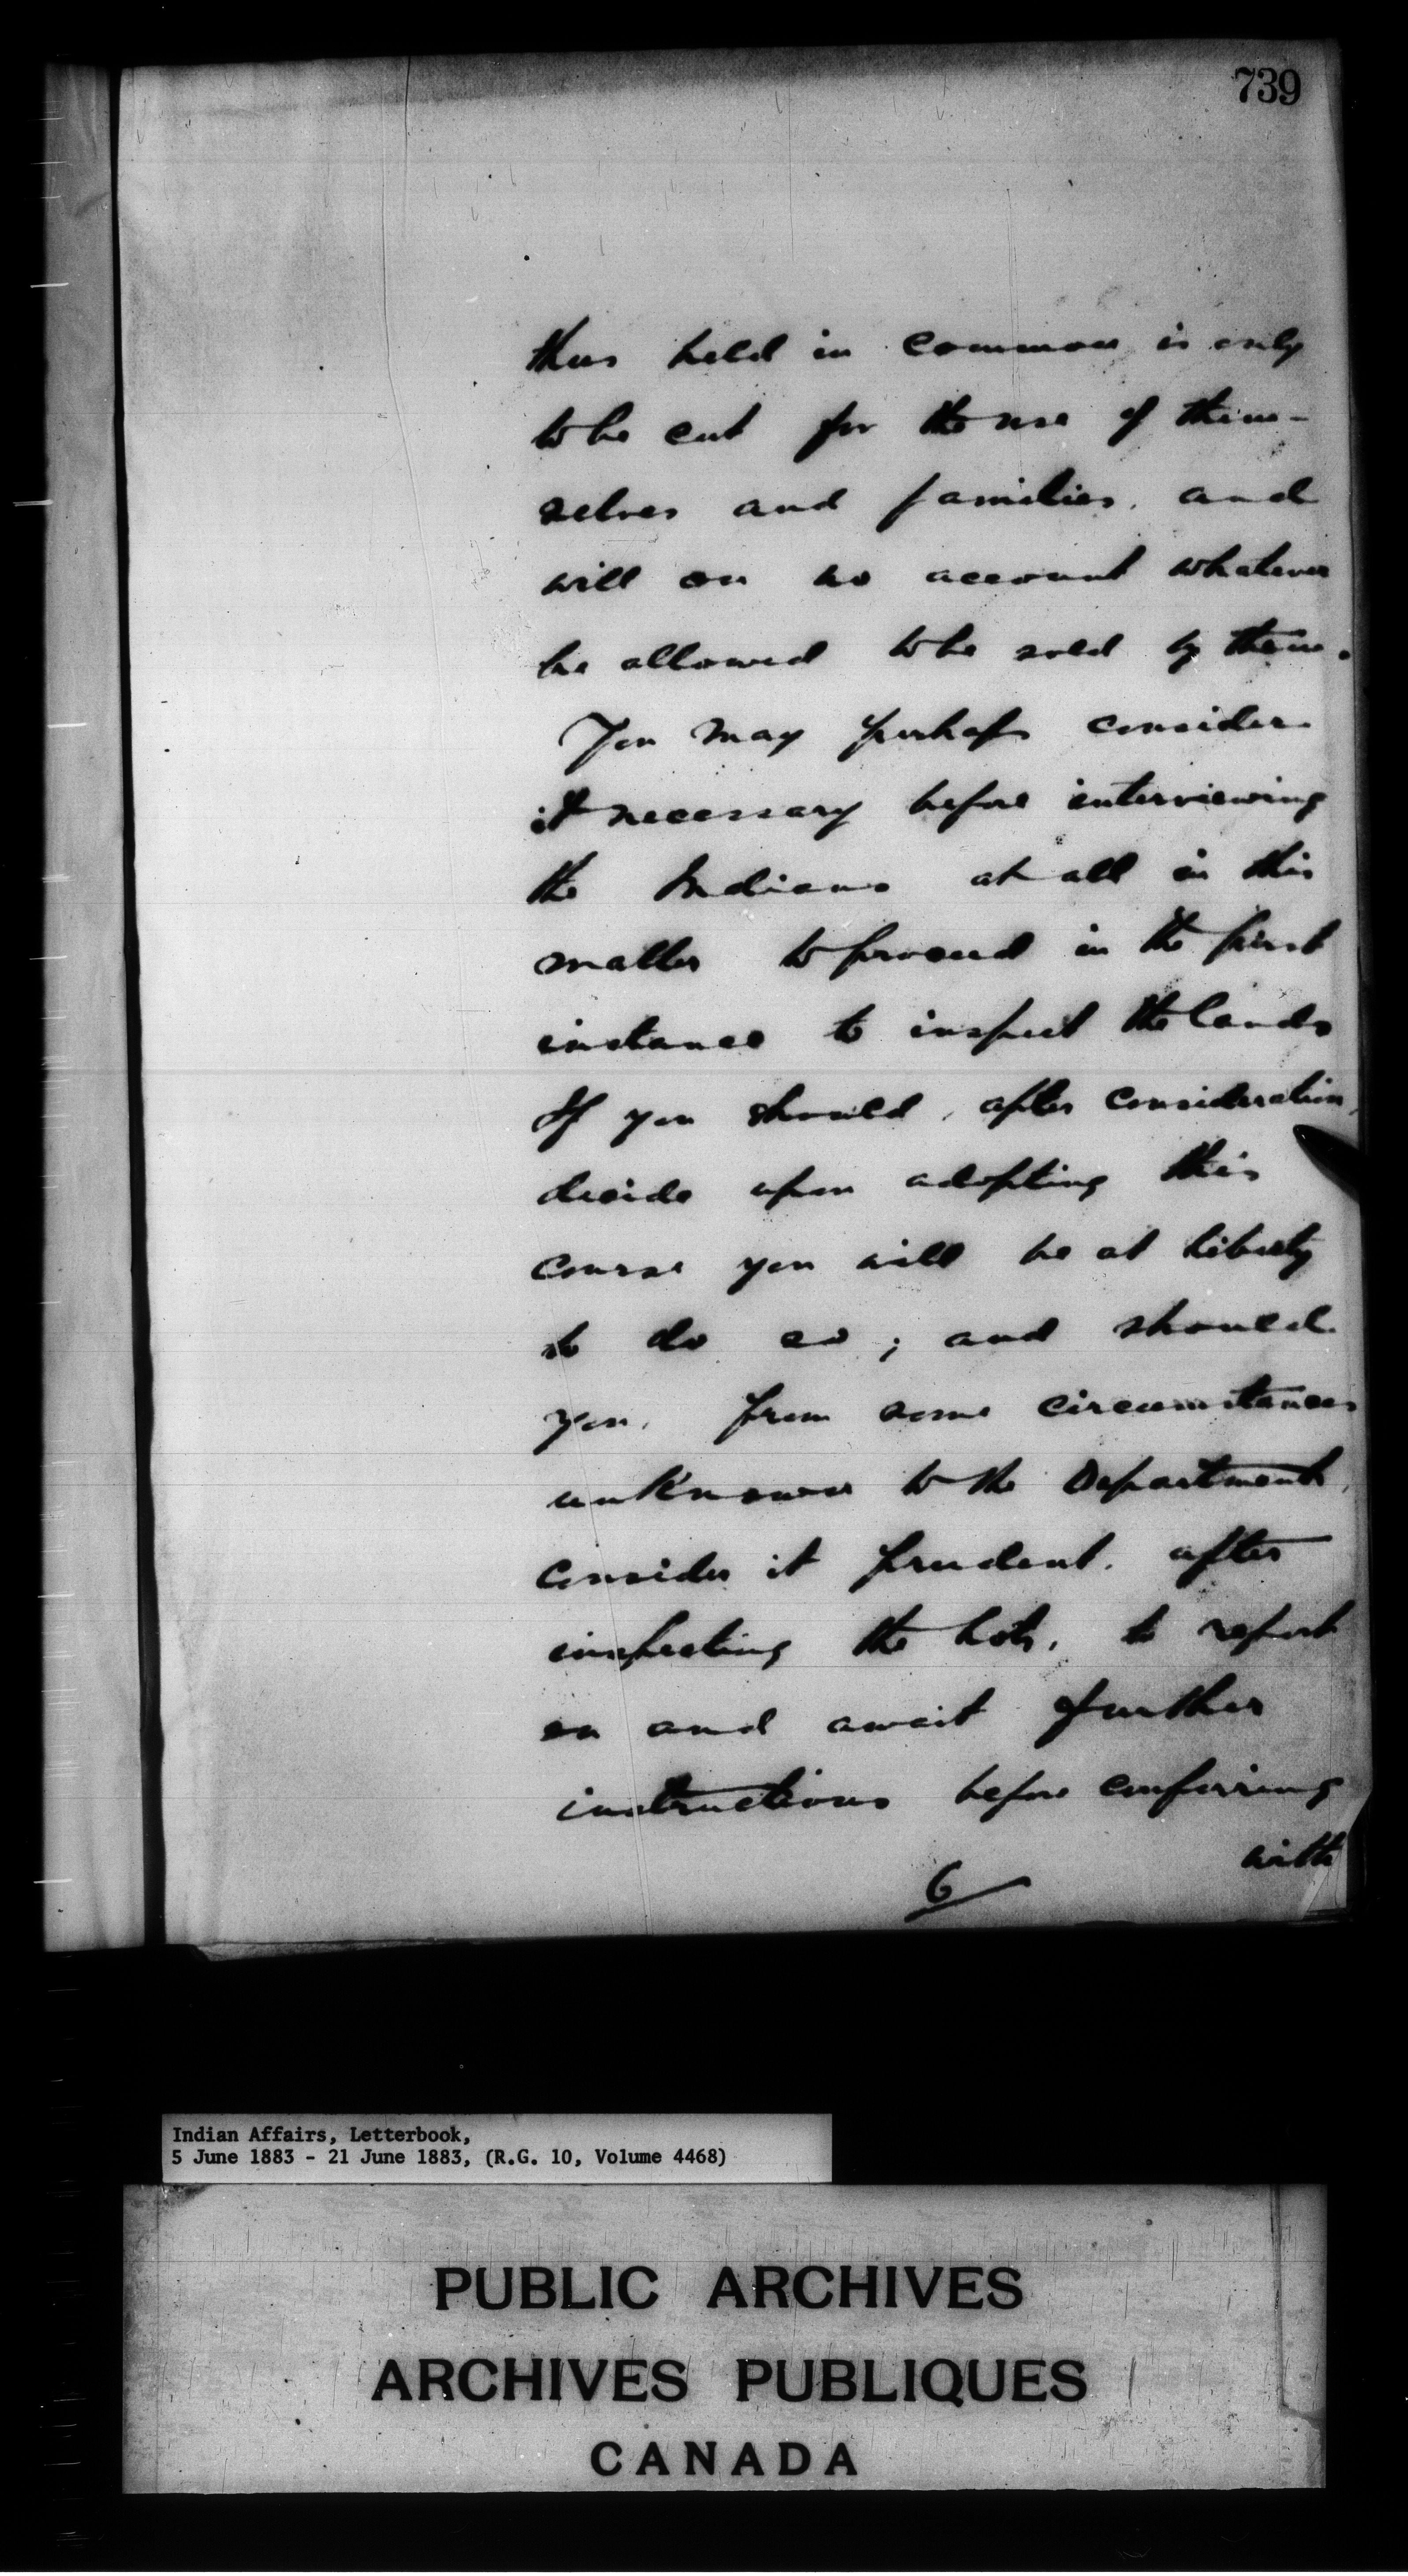 739
thus held in common is only
to be cut for the use of them-
selves and families, and
will on no account whatever
be allowed to be sold by them.
You may perhaps consider
it necessary before interviewing
the Indians at all in this
matter to proceed in the first
instance to inspect the lands
If you should, after consideration,
decide upon adopting this
course you will be at liberty
to do so; and should
you, from some circumstances
unknown to the Department,
consider it prudent, after
inspecting the lots, to report
on and await further
instructions before conferring
with
6
Indian Affairs, Letterbook,
5 June 1883 - 21 June 1883, (R.G. 10, Volume 4468)
PUBLIC ARCHIVES
ARCHIVES PUBLIQUES
CANADA